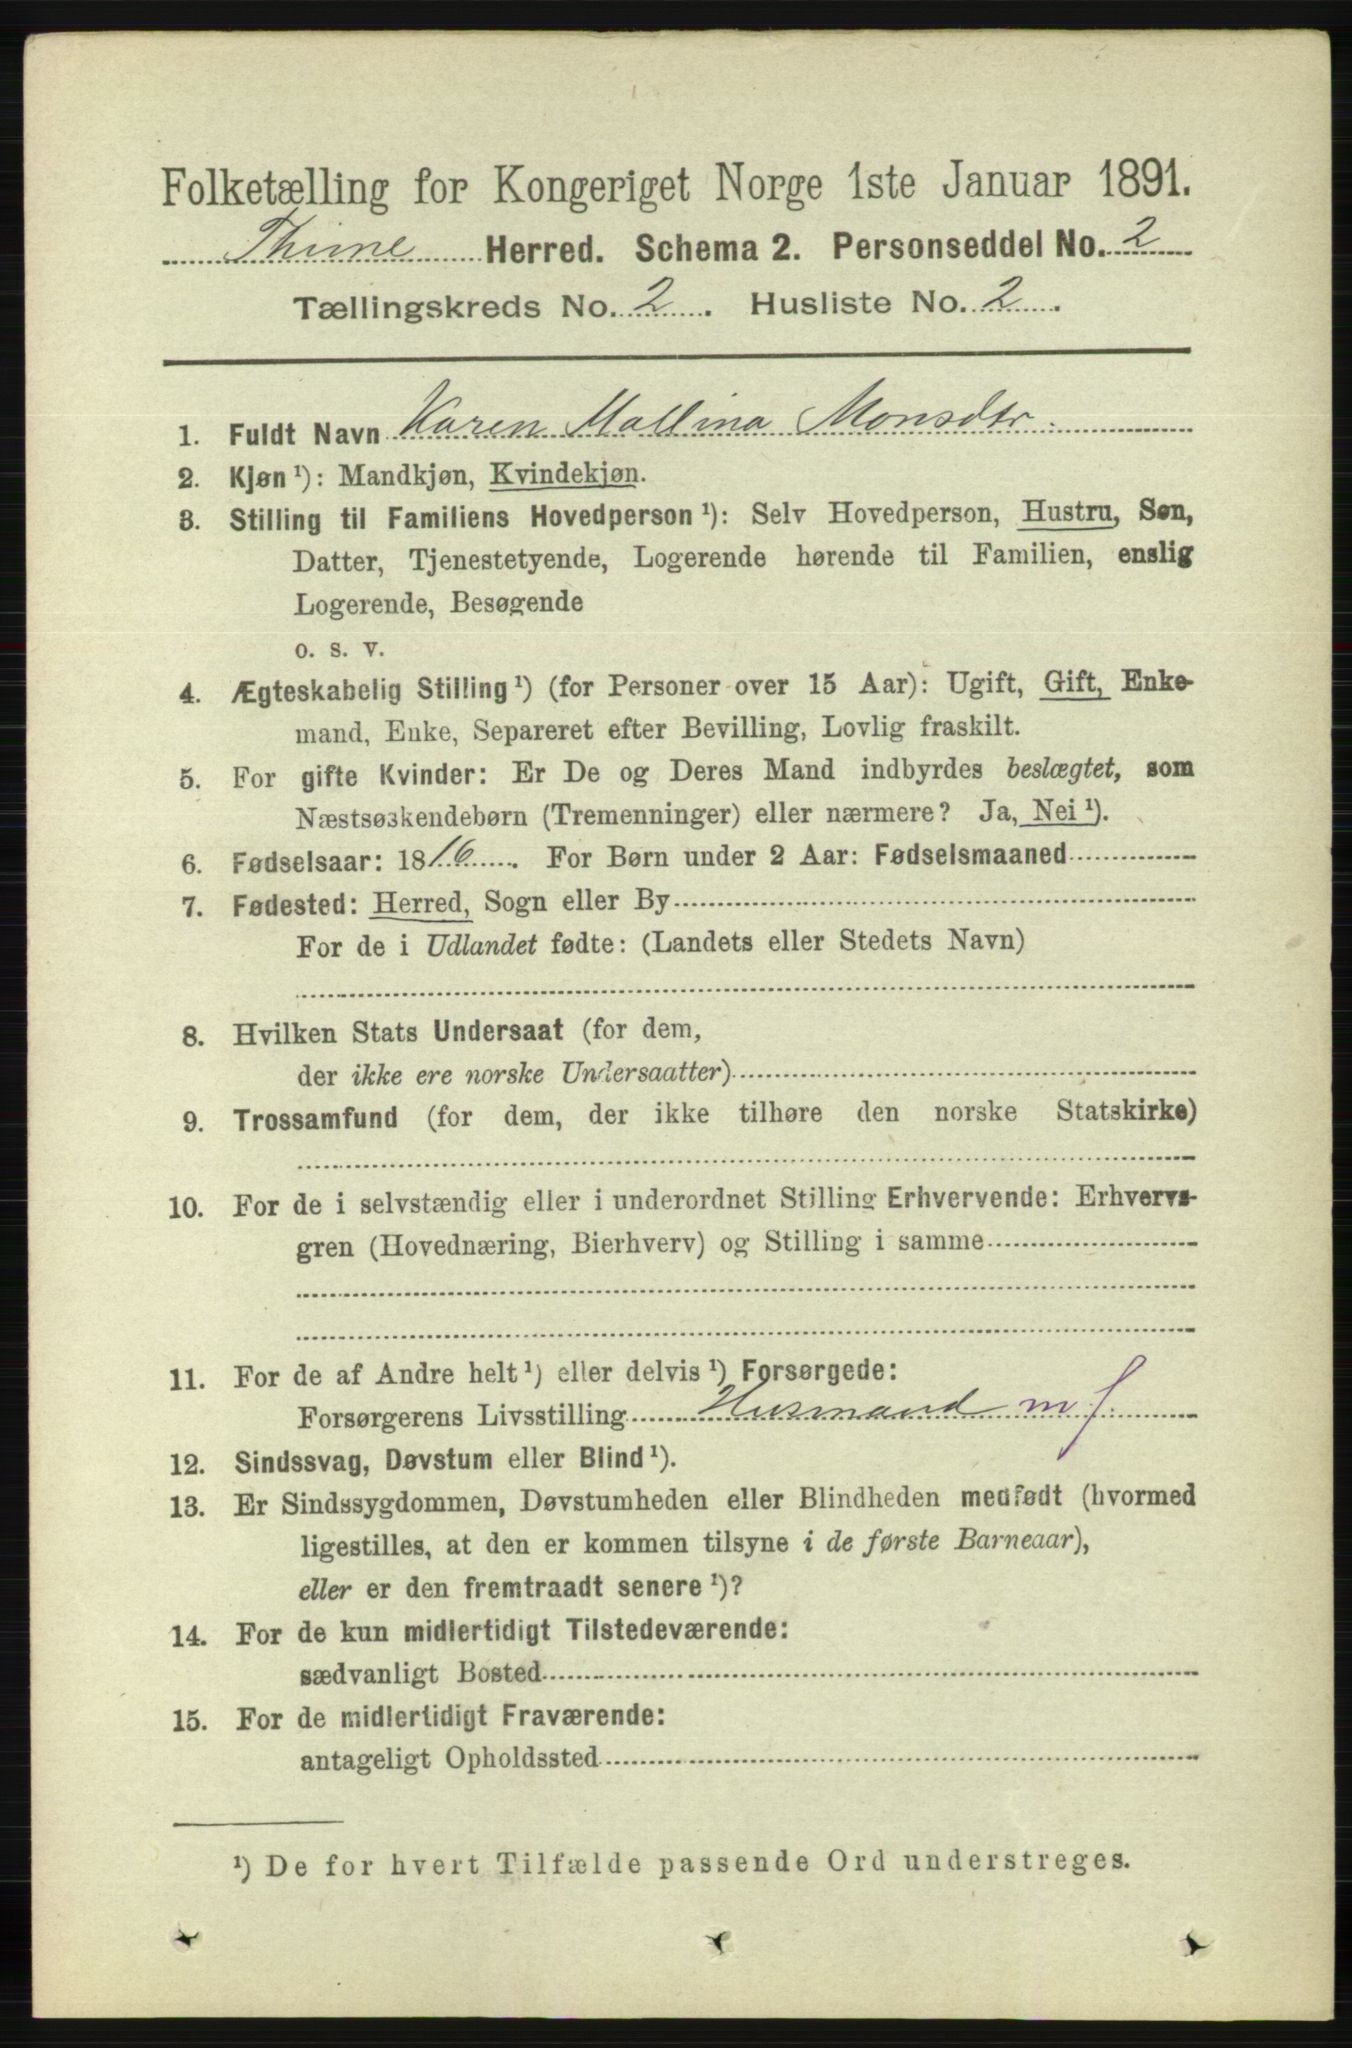 Folketælling for Kongeriget Norge 1ste Januar 1891.
Thime Herred. Schema 2. Personseddel No. 2
Tællingskreds No. 2. Husliste No. 2.
1. Fuldt Navn Karen Mallina Monsdtr.
2. Kjøn ¹): Mandkjøn, Kvindekjøn.
3. Stilling til Familiens Hovedperson ¹): Selv Hovedperson, Hustru, Søn,
Datter, Tjenestetyende, Logerende hørende til Familien, enslig
Logerende, Besøgende
o. s. v.
4. Ægteskabelig Stilling ¹) (for Personer over 15 Aar): Ugift, Gift, Enke-
mand, Enke, Separeret efter Bevilling, Lovlig fraskilt.
5. For gifte Kvinder: Er De og Deres Mand indbyrdes beslægtet, som
Næstsøskendebørn (Tremenninger) eller nærmere? Ja, Nei ¹).
6. Fødselsaar: 1816. For Børn under 2 Aar: Fødselsmaaned
7. Fødested: Herred, Sogn eller By
For de i Udlandet fødte: (Landets eller Stedets Navn)
8. Hvilken Stats Undersaat (for dem,
der ikke ere norske Undersaatter)
9. Trossamfund (for dem, der ikke tilhøre den norske Statskirke)
10. For de i selvstændig eller i underordnet Stilling Erhvervende: Erhvervs-
gren (Hovednæring, Bierhverv) og Stilling i samme
11. For de af Andre helt ¹) eller delvis ¹) Forsørgede:
Forsørgerens Livsstilling Husmand m j.
12. Sindssvag, Døvstum eller Blind ¹).
13. Er Sindssygdommen, Døvstumheden eller Blindheden medfødt (hvormed
ligestilles, at den er kommen tilsyne i de første Barneaar),
eller er den fremtraadt senere ¹)?
14. For de kun midlertidigt Tilstedeværende:
sædvanligt Bosted
15. For de midlertidigt Fraværende:
antageligt Opholdssted
¹) De for hvert Tilfælde passende Ord understreges.